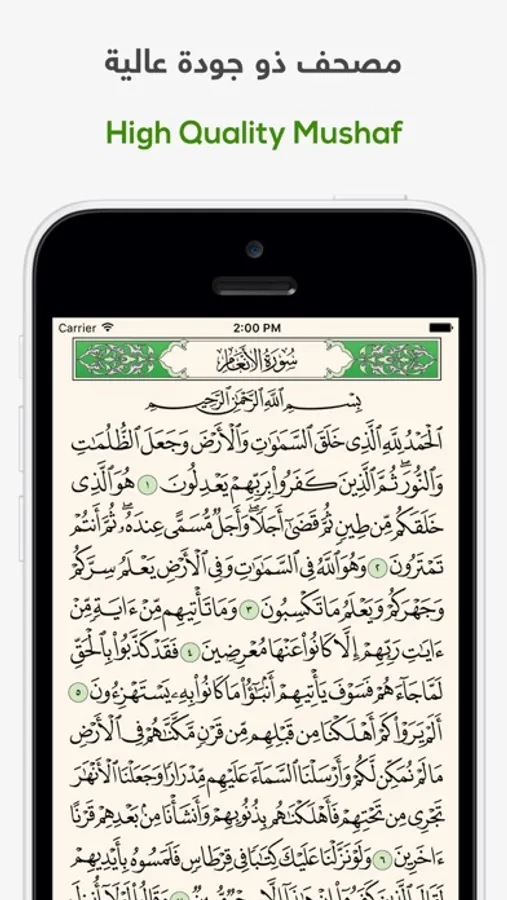 مصحف ذو جودة عالية
High Quality Mushaf
Carrier 2:00 PM
سُورَةُ الأَنْعَامِ
بِسْمِ ٱللَّهِ ٱلرَّحْمَٰنِ ٱلرَّحِيمِ
ٱلْحَمْدُ لِلَّهِ ٱلَّذِى خَلَقَ ٱلسَّمَٰوَٰتِ وَٱلْأَرْضَ وَجَعَلَ ٱلظُّلُمَٰتِ
وَٱلنُّورَ ۖ ثُمَّ ٱلَّذِينَ كَفَرُوا۟ بِرَبِّهِمْ يَعْدِلُونَ ١ هُوَ ٱلَّذِى
خَلَقَكُم مِّن طِينٍ ثُمَّ قَضَىٰٓ أَجَلًا ۖ وَأَجَلٌ مُّسَمًّى عِندَهُۥ ۖ ثُمَّ أَنتُمْ
تَمْتَرُونَ ٢ وَهُوَ ٱللَّهُ فِى ٱلسَّمَٰوَٰتِ وَفِى ٱلْأَرْضِ ۖ يَعْلَمُ سِرَّكُمْ
وَجَهْرَكُمْ وَيَعْلَمُ مَا تَكْسِبُونَ ٣ وَمَا تَأْتِيهِم مِّنْ ءَايَةٍ مِّنْ
ءَايَٰتِ رَبِّهِمْ إِلَّا كَانُوا۟ عَنْهَا مُعْرِضِينَ ٤ فَقَدْ كَذَّبُوا۟ بِٱلْحَقِّ
لَمَّا جَآءَهُمْ ۖ فَسَوْفَ يَأْتِيهِمْ أَنۢبَٰٓؤُا۟ مَا كَانُوا۟ بِهِۦ يَسْتَهْزِءُونَ ٥
أَلَمْ يَرَوْا۟ كَمْ أَهْلَكْنَا مِن قَبْلِهِم مِّن قَرْنٍ مَّكَّنَّٰهُمْ فِى ٱلْأَرْضِ
مَا لَمْ نُمَكِّن لَّكُمْ وَأَرْسَلْنَا ٱلسَّمَآءَ عَلَيْهِم مِّدْرَارًا وَجَعَلْنَا ٱلْأَنْهَٰرَ
تَجْرِى مِن تَحْتِهِمْ فَأَهْلَكْنَٰهُم بِذُنُوبِهِمْ وَأَنشَأْنَا مِنۢ بَعْدِهِمْ قَرْنًا
ءَاخَرِينَ ٦ وَلَوْ نَزَّلْنَا عَلَيْكَ كِتَٰبًا فِى قِرْطَاسٍ فَلَمَسُوهُ بِأَيْدِيهِمْ